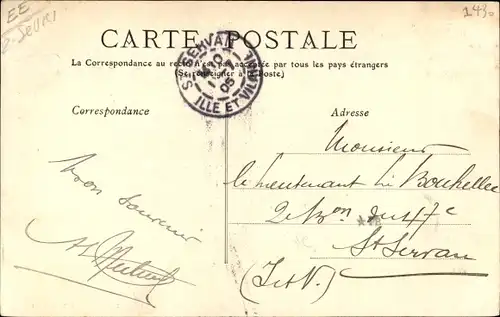 EE
1430
CARTE POSTALE
La Correspondance au recto n'est pas acceptée par tous les pays étrangers
(Se renseigner à la Poste)
ST SERVAN
05
ILLE ET VILAINE
Correspondance
Adresse
Monsieur
le lieutenant Le Bouhellec
2e Bon du 47e
St Servan
(I et V.)
Bon Souvenir